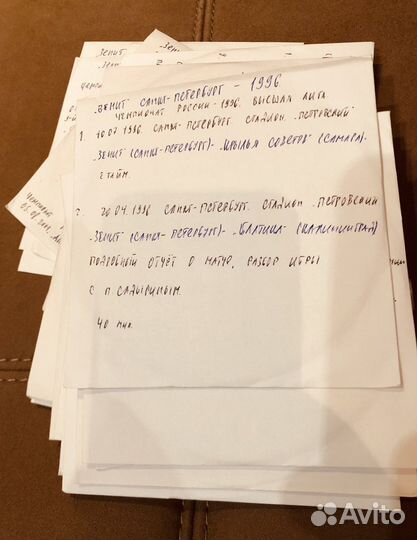 "ЗЕНИТ" САНКТ-ПЕТЕРБУРГ - 1996
ЧЕМПИОНАТ РОССИИ - 1996. ВЫСШАЯ ЛИГА.
1. 10.07.1996. САНКТ-ПЕТЕРБУРГ. СТАДИОН "ПЕТРОВСКИЙ"
"ЗЕНИТ" (САНКТ-ПЕТЕРБУРГ) - "КРЫЛЬЯ СОВЕТОВ" (САМАРА).
2 ТАЙМ.
2. 20.04.1996 САНКТ-ПЕТЕРБУРГ. СТАДИОН "ПЕТРОВСКИЙ"
ЗЕНИТ" (САНКТ-ПЕТЕРБУРГ) - "БАЛТИКА" (КАЛИНИНГРАД)
ПОДРОБНЫЙ ОТЧЁТ О МАТЧЕ, РАЗБОР ИГРЫ
С П САДЫРИНЫМ.
40 мин.
Avito